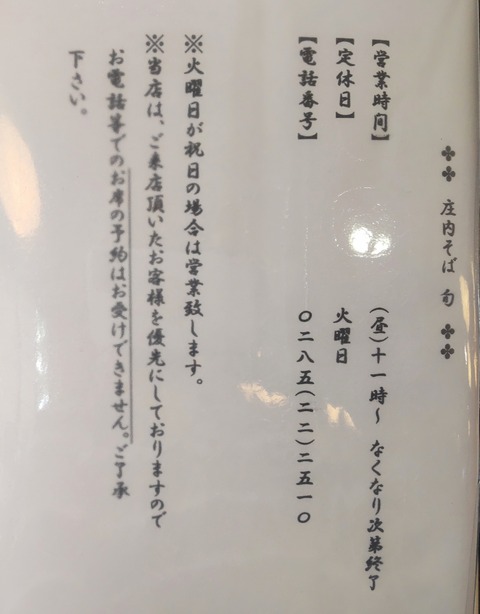 ✤✤ 庄内そば 旬 ✤✤
【営業時間】 (昼)十一時~ なくなり次第終了
【定休日】 火曜日
【電話番号】 〇二八五(二二)二五一〇
※火曜日が祝日の場合は営業致します。
※当店は、ご来店頂いたお客様を優先にしておりますので
お電話等でのお席の予約はお受けできません。ご了承
下さい。